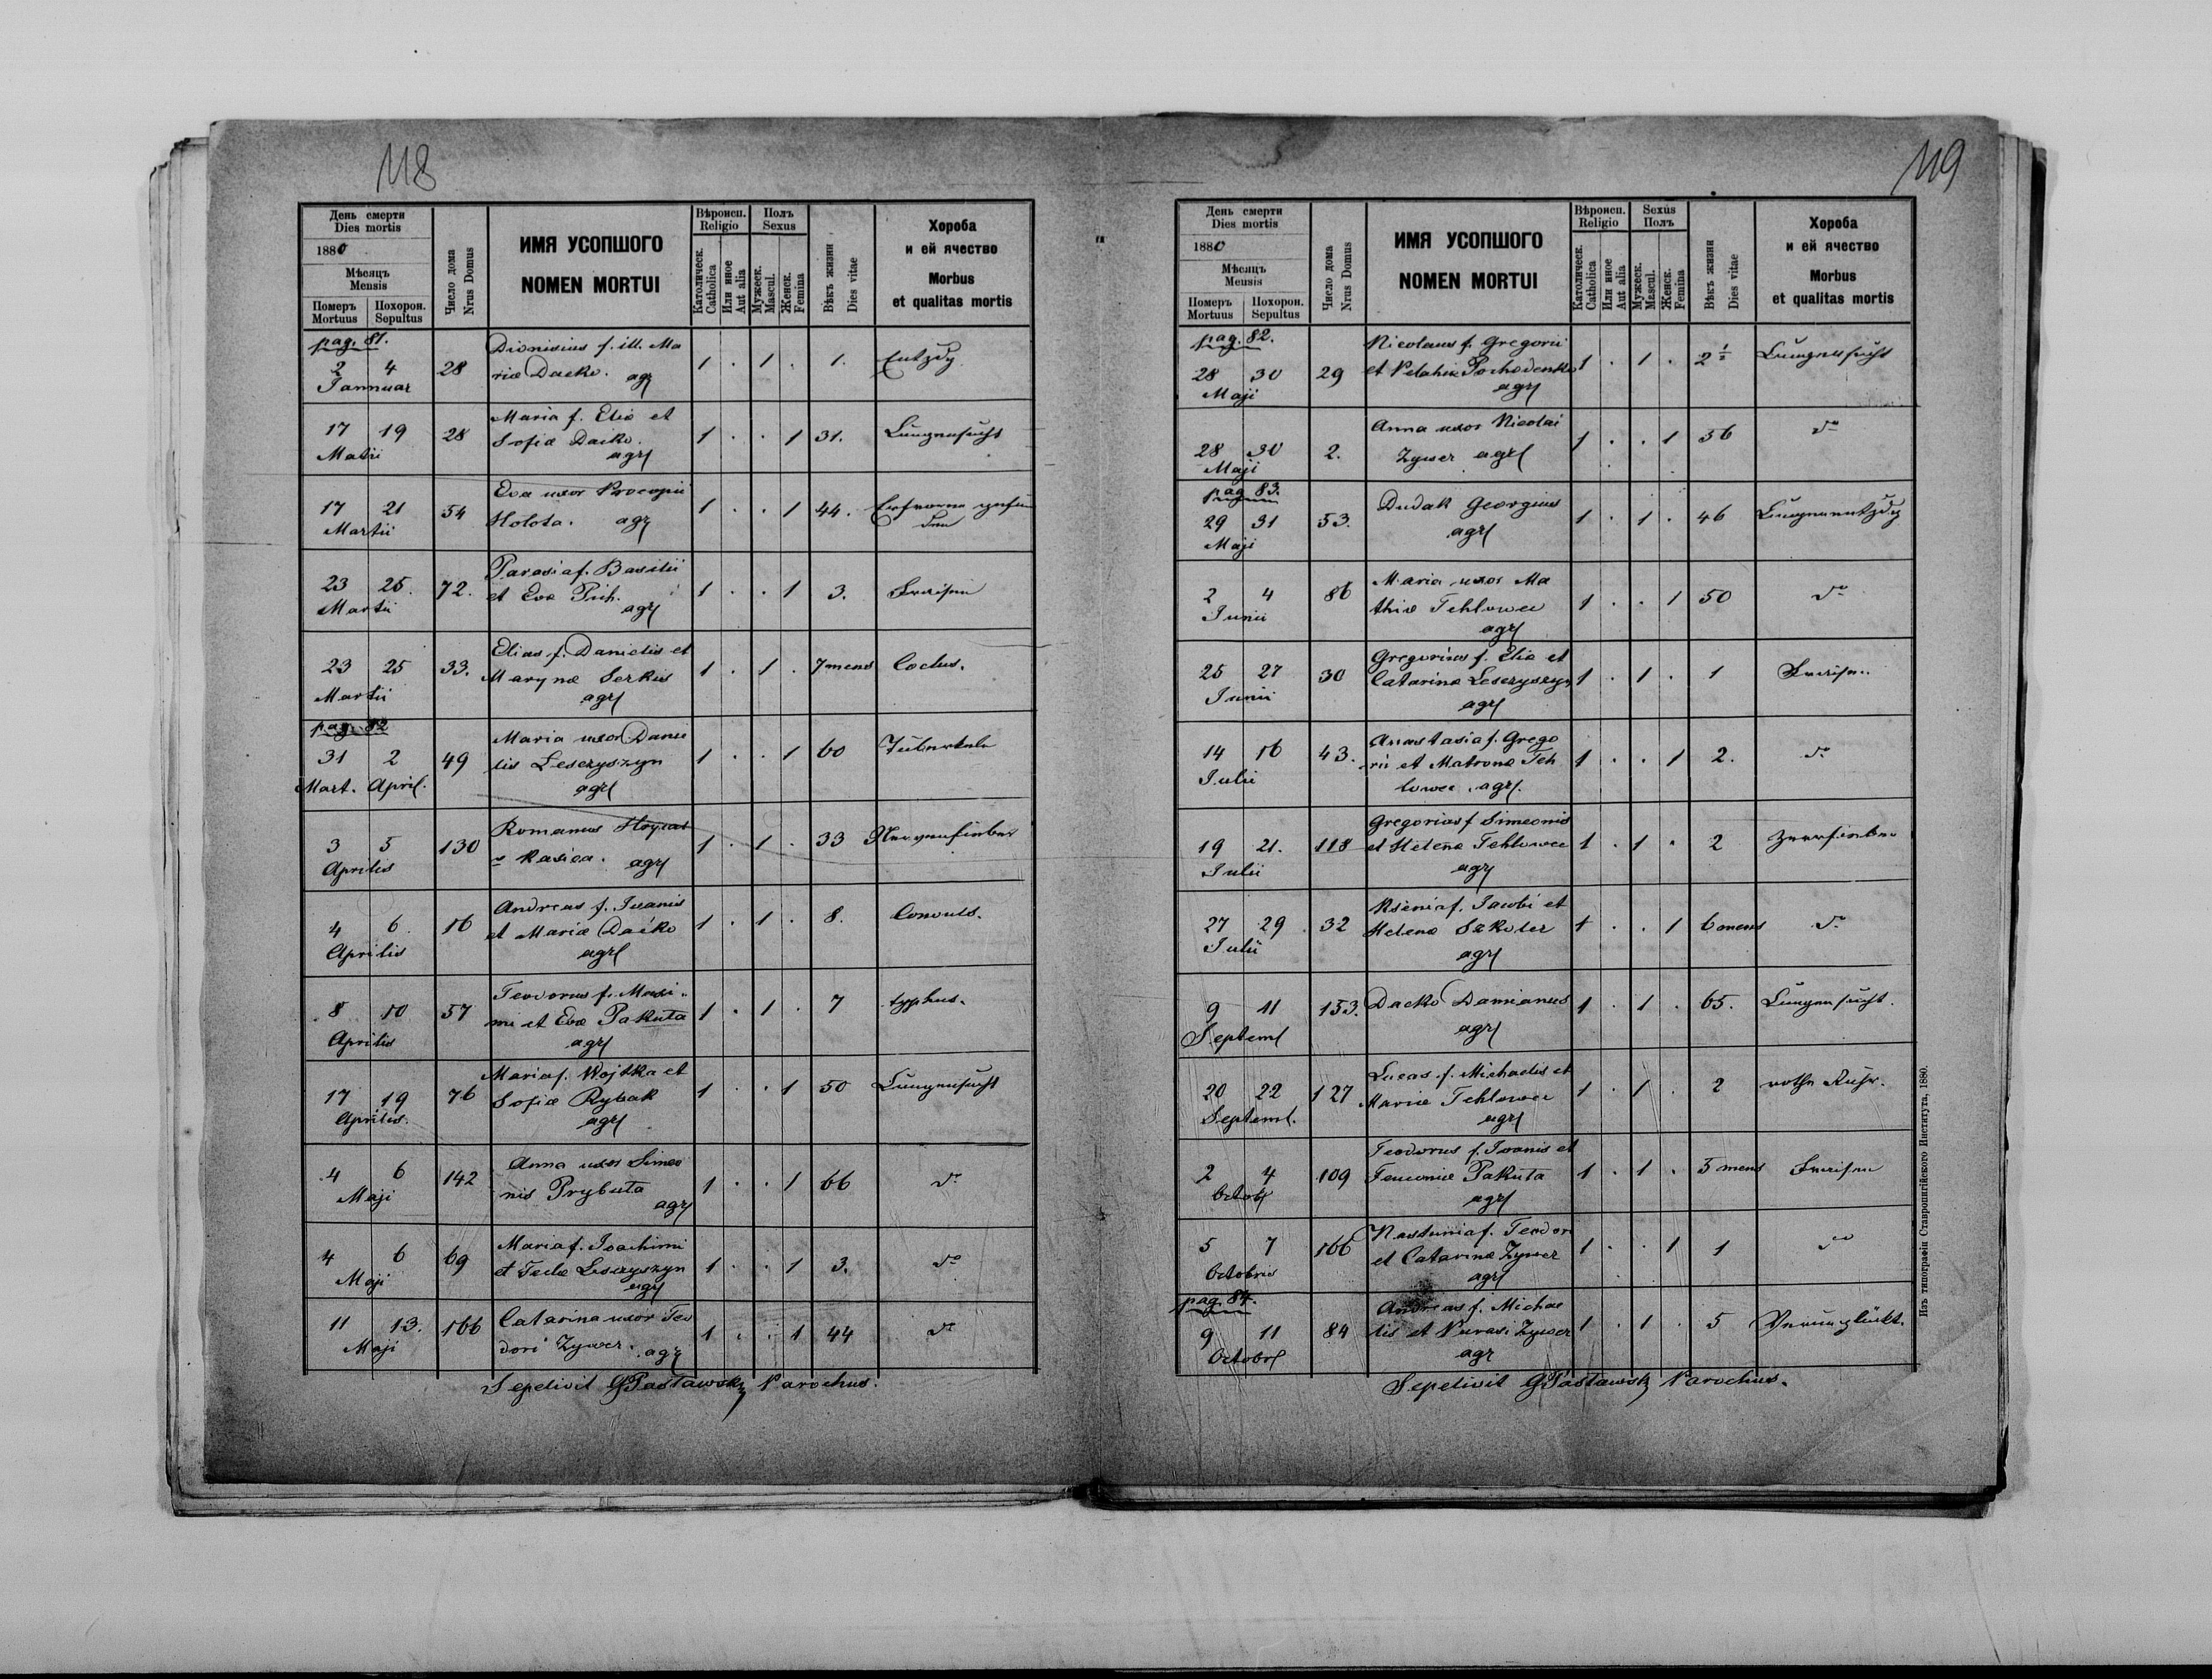 118
День смерти
Dies mortis
1880
Мѣсяць
Mensis
Померъ Похорон.
Mortuus Sepultus
Число дома
Nrus Domus
ИМЯ УСОПШОГО
NOMEN MORTUI
Вѣроисп.
Religio
Католическ.
Catholica
Или иное
Aut alia
Полъ
Sexus
Мужеск.
Mascul.
Женск.
Femina
Вѣкъ жизни
Dies vitae
Хороба
и ей ячество
Morbus
et qualitas mortis
pag. 81.
Dionisius f. ill. Ma
2 4 28 riæ Dacko. agr 1 . 1 . 1. Entzdg
Jannuar
Maria f. Eliæ et
17 19 28 Sofiæ Dacko. 1 . . 1 31. Lungensucht
Matii agr
Eva uxor Procopii
17 21 54 Holota. agr 1 . . 1 44.
Martii
Parasia f. Basilii
23 25. 72. et Evæ Pich. 1 . . 1 3. Fraisen
Martii agr
Elias f. Danielis et
23 25 33. Marynæ Serkis 1 . 1 . 7 mens
Martii agr
pag. 82
Maria uxor Danie
31 2 49 lis Leszyszyn 1 . . 1 60 Tuberkeln
Mart. April. agr
Romanus
3 5 130 agr 1 . 1 . 33 Nervenfieber
Aprilis
Andreas f. Ivanis
4 6. 16 et Mariæ Dacko 1 . 1 . 8. Convuls.
Aprilis agr
Teodorus f. Maxi-
8 10 57 mi et Evæ Pakuta 1 . 1 . 7 typhus.
Aprilis agr
Maria f. Wojtka et
17 19 76 Sofiæ Rybak 1 . . 1 50 Lungensucht
Aprilis. agr
Anna uxor Simeo
4 6 142 nis Prybuta 1 . . 1 66 do
Maji agr
Maria f. Joachimi
4 6 69 et Teclæ Leszyszyn 1 . . 1 3. do
Maji agr
Catarina uxor Teo
11 13. 166 dori Zywer. agr 1 . . 1 44 do
Maji
Sepelivit Parochus.
119
День смерти
Dies mortis
1880
Мѣсяць
Mensis
Померъ Похорон.
Mortuus Sepultus
Число дома
Nrus Domus
ИМЯ УСОПШОГО
NOMEN MORTUI
Вѣроисп.
Religio
Католическ.
Catholica
Или иное
Aut alia
Sexus
Полъ
Мужеск.
Mascul.
Женск.
Femina
Вѣкъ жизни
Dies vitae
Хороба
и ей ячество
Morbus
et qualitas mortis
pag. 82.
Nicolaus f. Gregorii
28 30 29 et Pelahiæ Pochodenko 1 . 1 . 2 Lungensucht
Maji agr
Anna uxor Nicolai
28 30 2. Zywer agr 1 . . 1 56 do
Maji
pag 83.
Dudak Georgius
29 31 53. agr 1 . 1 . 46 Lungenentzdg
Maji
Maria uxor Ma
2 4 86 thiæ Tehlowec 1 . . 1 50 do
Junii agr
Gregorius f. Eliæ et
25 27 30 Catarinæ Leszyszyn 1 . 1 . 1 Fraisen
Junii agr
Anastasia f. Grego
14 16 43. rii et Matronæ Teh 1 . . 1 2. do
Julii lowec agr.
Gregorius f Simeonis
19 21. 118 et Helenæ Tehlowec 1 . 1 . 2 Zehrfieber
Julii agr
Ksenia f. Jacobi et
27 29 32 Helenæ Szkoler 1 . . 1 6 mens do
Julii agr
9 11 153. Dacko Damianus 1 . 1 . 65. Lungensucht.
Septem agr
Lucas f. Michaelis et
20 22 127 Mariæ Tehlowec 1 . 1 . 2 rothe Ruhr.
Septem. agr
Teodorus f. Ivanis et
2 4 109 Pakuta 1 . 1 . 5 mens Fraisen
Octob agr
Nastunia f. Teodori
5 7 166 et Catarinæ Zywer 1 . . 1 1 do
Octobris agr
pag. 84.
Andreas f. Michae
9 11 84 lis et Zywer 1 . 1 . 5 Verunglückt.
Octobr agr
Sepelivit Parochus.
Изъ типографіи Ставропигійского Института, 1880.